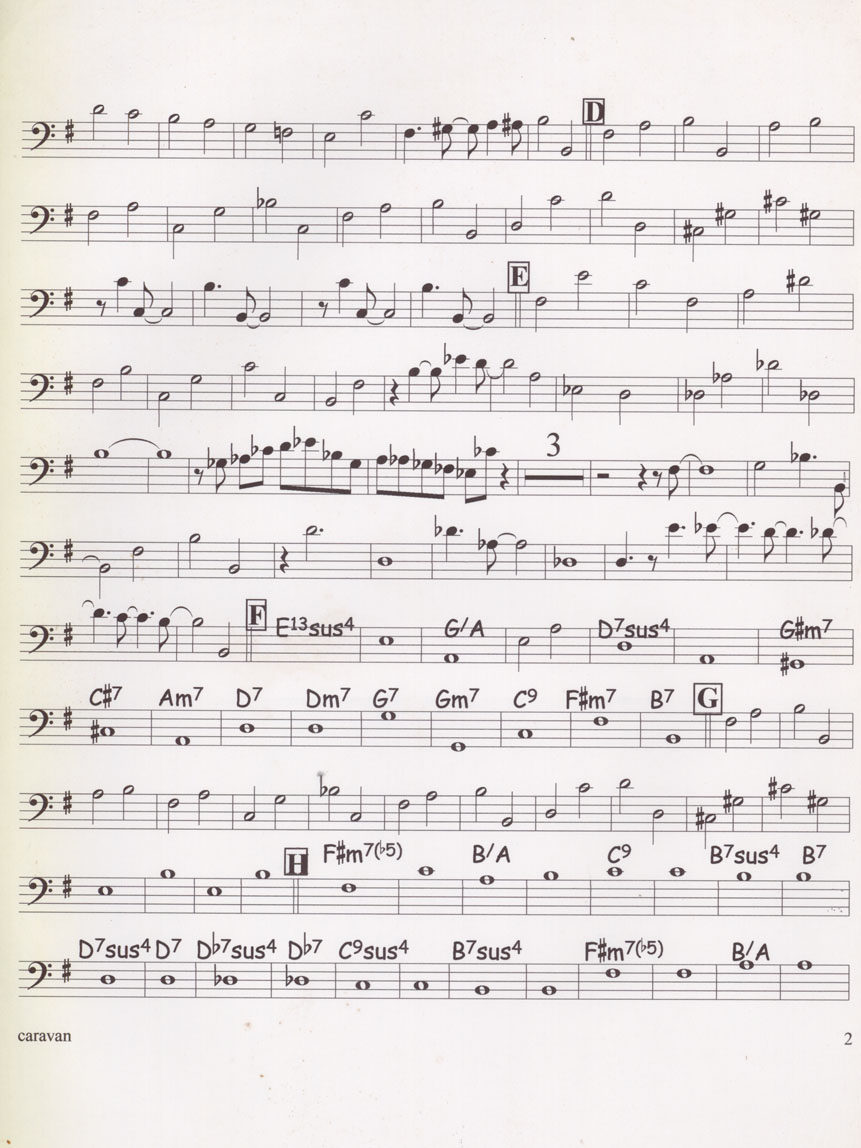 D
E
3
F E13sus4 G/A D7sus4 G#m7
C#7 Am7 D7 Dm7 G7 Gm7 C9 F#m7 B7 G
H F#m7(b5) B/A C9 B7sus4 B7
D7sus4 D7 Db7sus4 Db7 C9sus4 B7sus4 F#m7(b5) B/A
caravan 2